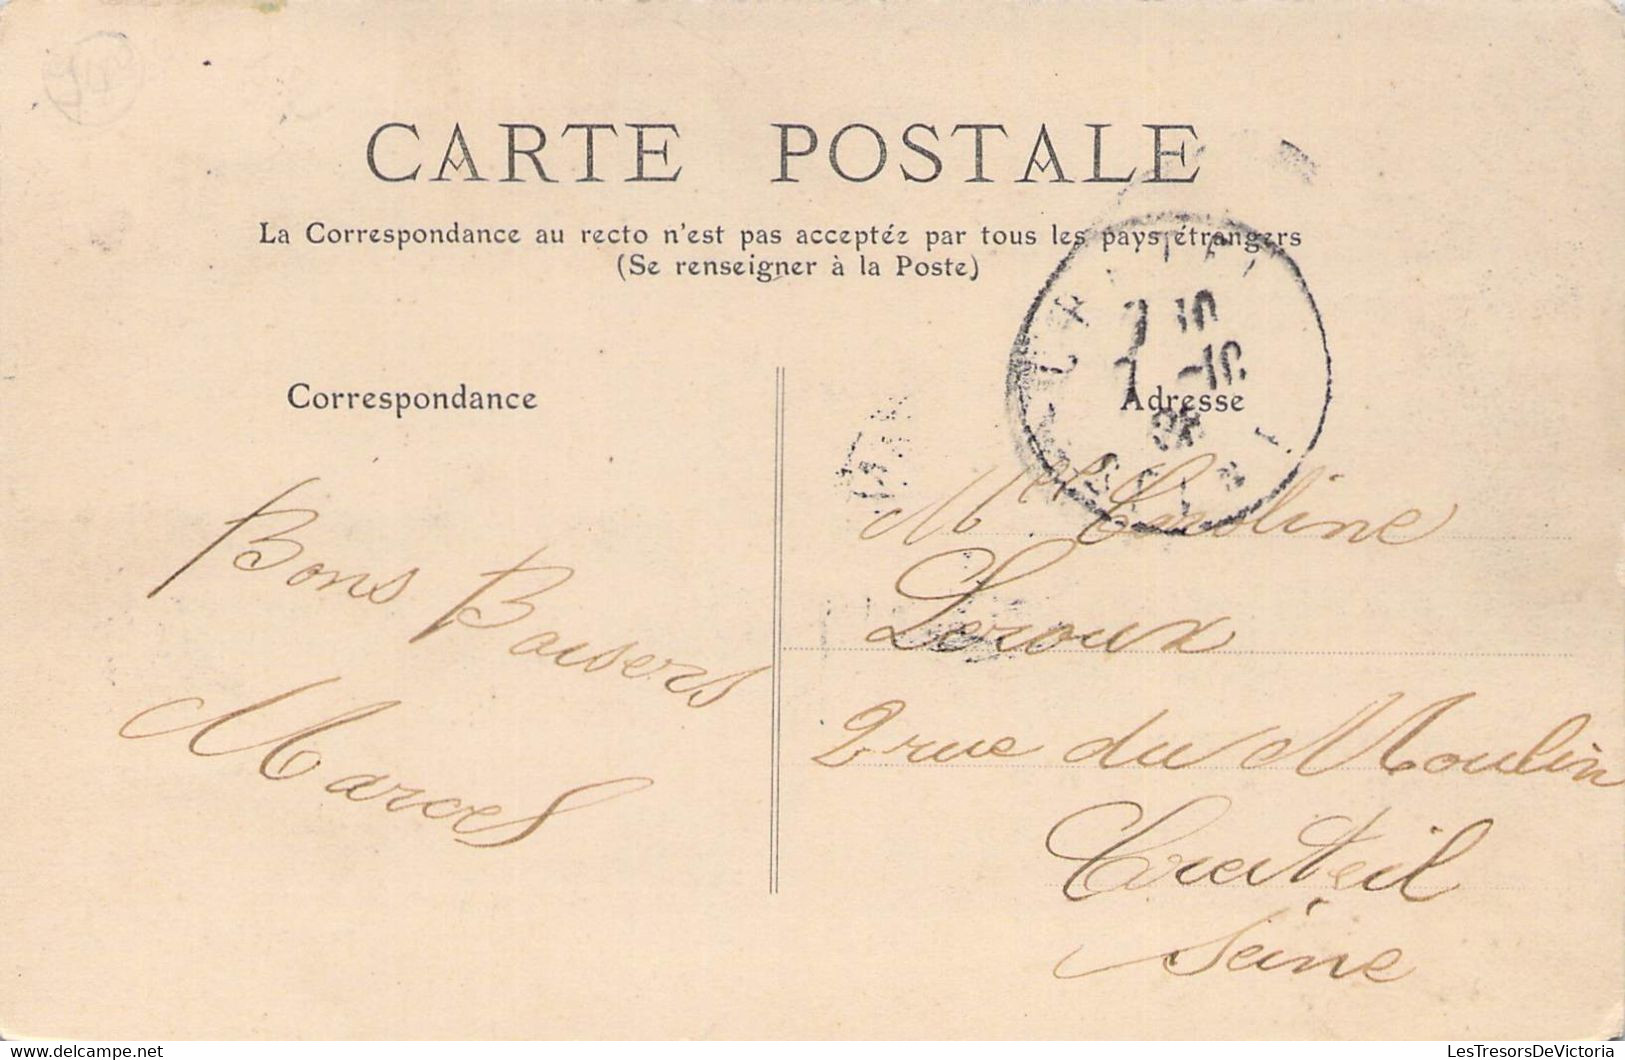 CARTE POSTALE
La Correspondance au recto n'est pas acceptée par tous les pays étrangers
(Se renseigner à la Poste)
Correspondance
Bons Baisers
Marcel
Adresse
7 -10
Mel Caroline
Leroux
2 rue du Moulin
Creteil
Seine
delcampe.net
LesTresorsDeVictoria